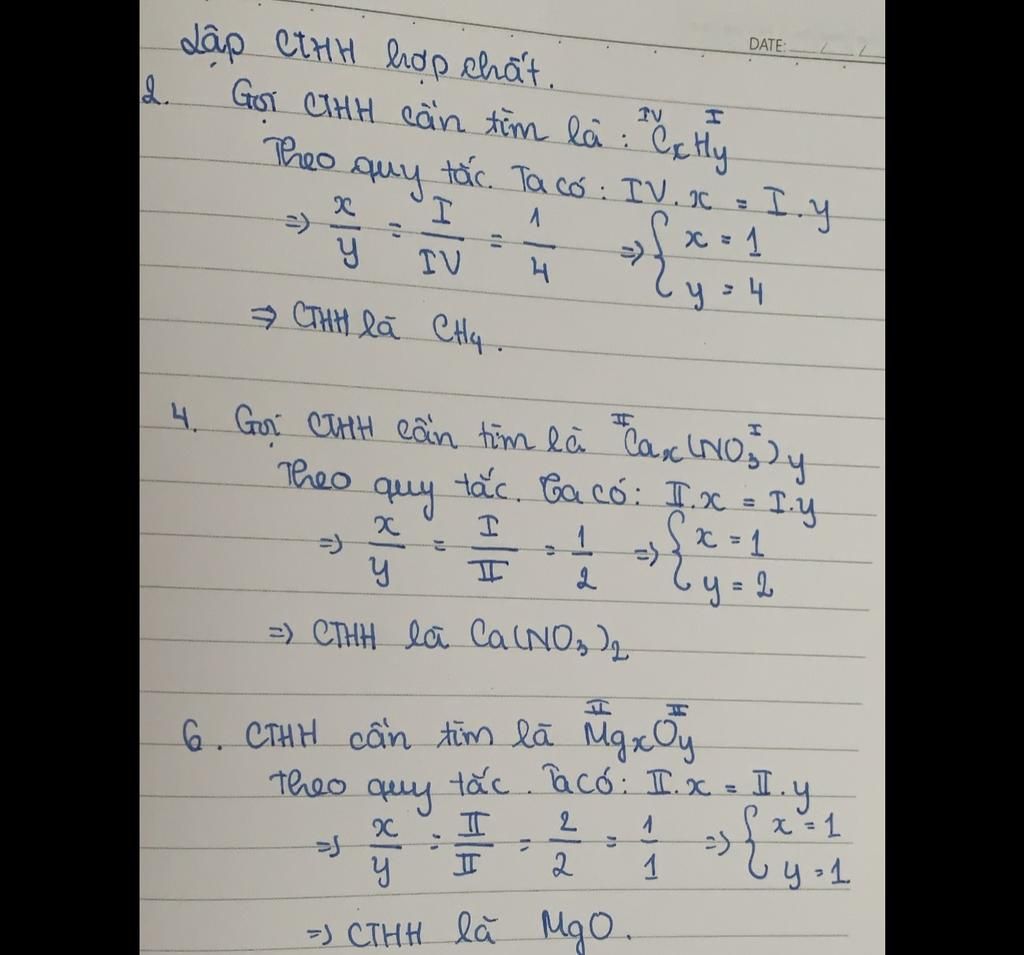 DATE: / /
Lập CTHH hợp chất.
2. Gọi CTHH cần tìm là : CxHy (IV, I)
Theo quy tắc. Ta có : IV.x = I.y
=> x/y = I/IV = 1/4 => { x = 1
y = 4
=> CTHH là CH₄.
4. Gọi CTHH cần tìm là Cax(NO₃)y (II, I)
Theo quy tắc. Ta có : II.x = I.y
=> x/y = I/II = 1/2 => { x = 1
y = 2
=> CTHH là Ca(NO₃)₂
6. CTHH cần tìm là MgxOy (II, II)
Theo quy tắc. Ta có : II.x = II.y
=> x/y = II/II = 2/2 = 1/1 => { x = 1
y = 1
=> CTHH là MgO.